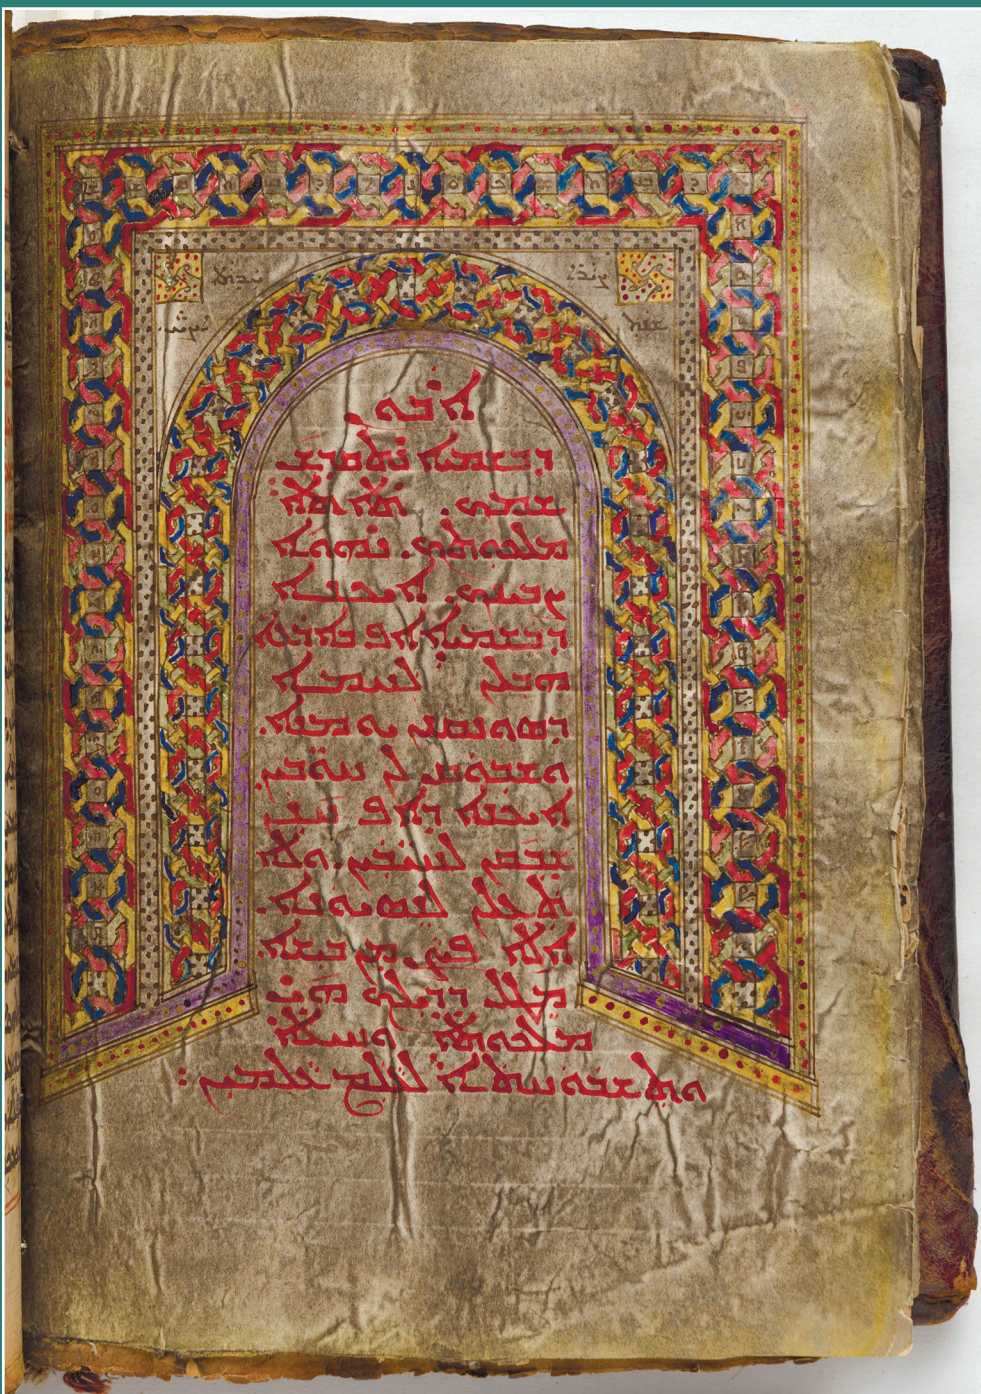 ܐܒܘܢ
ܕܒܫܡܝܐ ܢܬܩܕܫ
ܫܡܟ. ܬܐܬܐ܀
ܡܠܟܘܬܟ. ܢܗܘܐ
ܨܒܝܢܟ. ܐܝܟܢܐ
ܕܒܫܡܝܐ ܐܦ ܒܐܪܥܐ
ܗܒܠܢ ܠܚܡܐ
ܕܣܘܢܩܢܢ ܝܘܡܢܐ.
ܘܫܒܘܩ ܠܢ ܚܘܒܝܢ
ܐܝܟܢܐ ܕܐܦ ܚܢܢ
ܫܒܩܢ ܠܚܝܒܝܢ. ܘܠܐ
ܬܥܠܢ ܠܢܣܝܘܢܐ.
ܐܠܐ ܦܨܢ ܡܢ ܒܝܫܐ
ܡܛܠ ܕܕܝܠܟ ܗܝ
ܡܠܟܘܬܐ ܘܚܝܠܐ
ܘܬܫܒܘܚܬܐ ܠܥܠܡ ܥܠܡܝܢ܀